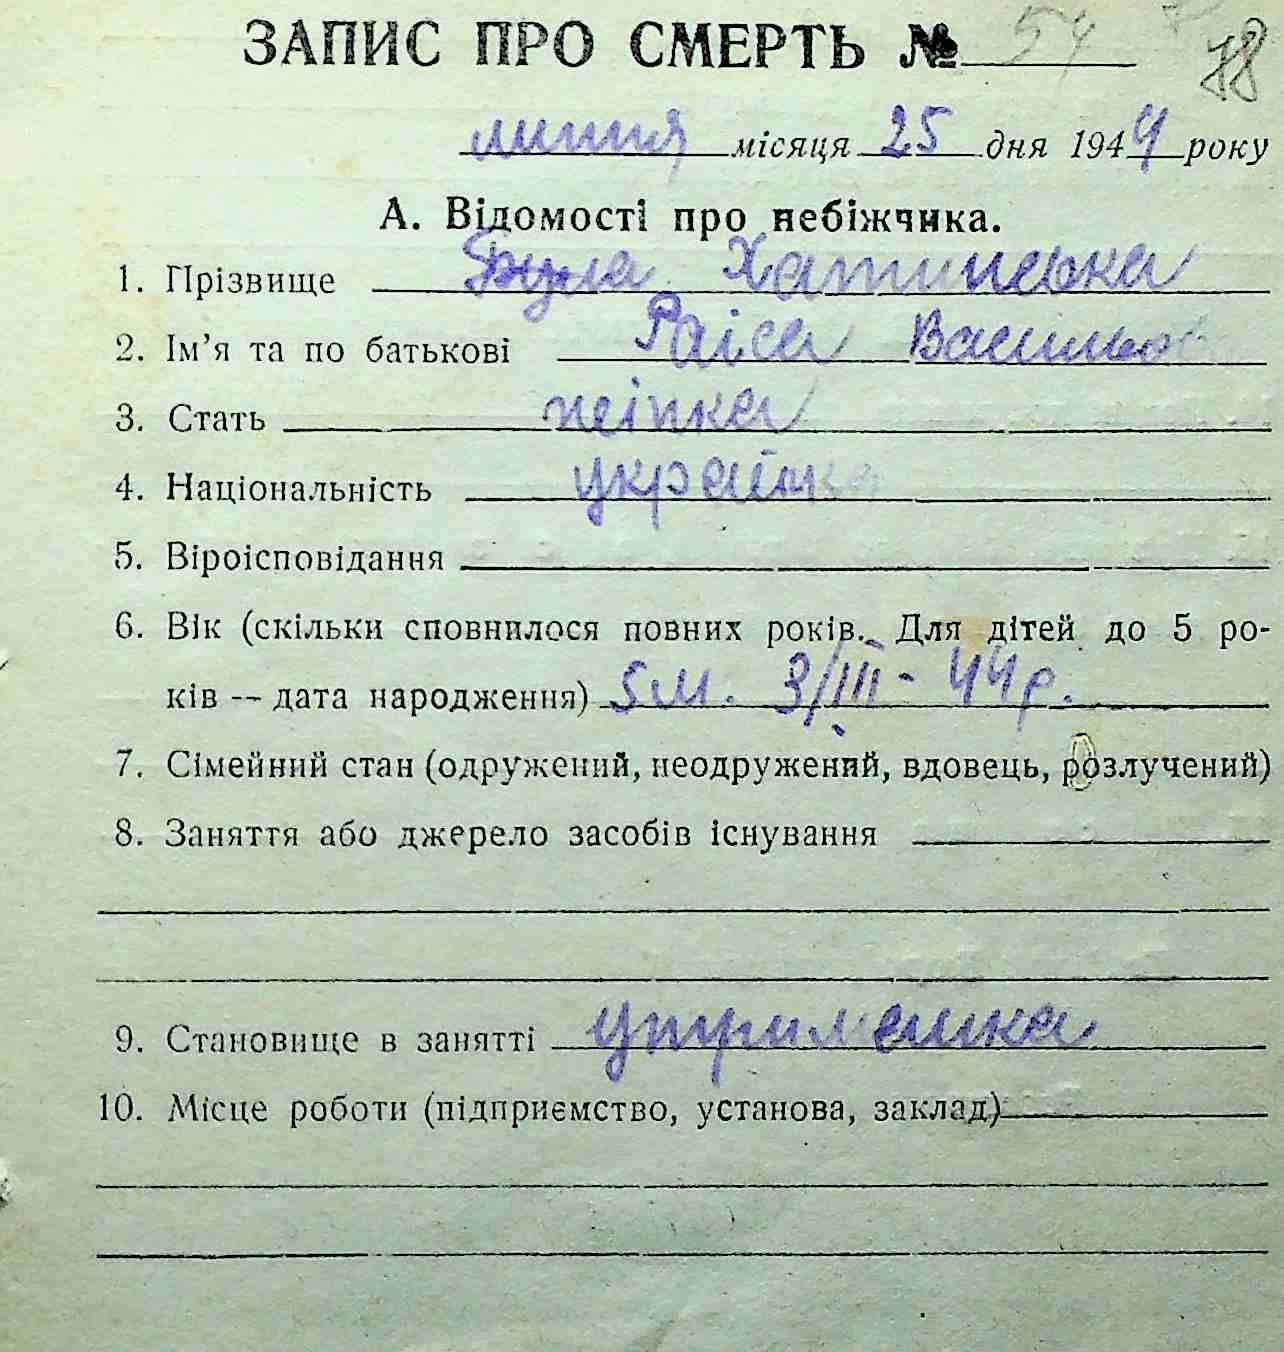 ЗАПИС ПРО СМЕРТЬ № 54 78
липня місяця 25 дня 1944 року
А. Відомості про небіжчика.
1. Прізвище Хатинська
2. Ім’я та по батькові Раіса
3. Стать
4. Національність українка
5. Віроісповідання
6. Вік (скільки сповнилося повних років. Для дітей до 5 ро-
ків -- дата народження) 5 м. 3/III - 44 р.
7. Сімейний стан (одружений, неодружений, вдовець, розлучений)
8. Заняття або джерело засобів існування
9. Становище в занятті утриманка
10. Місце роботи (підприємство, установа, заклад)